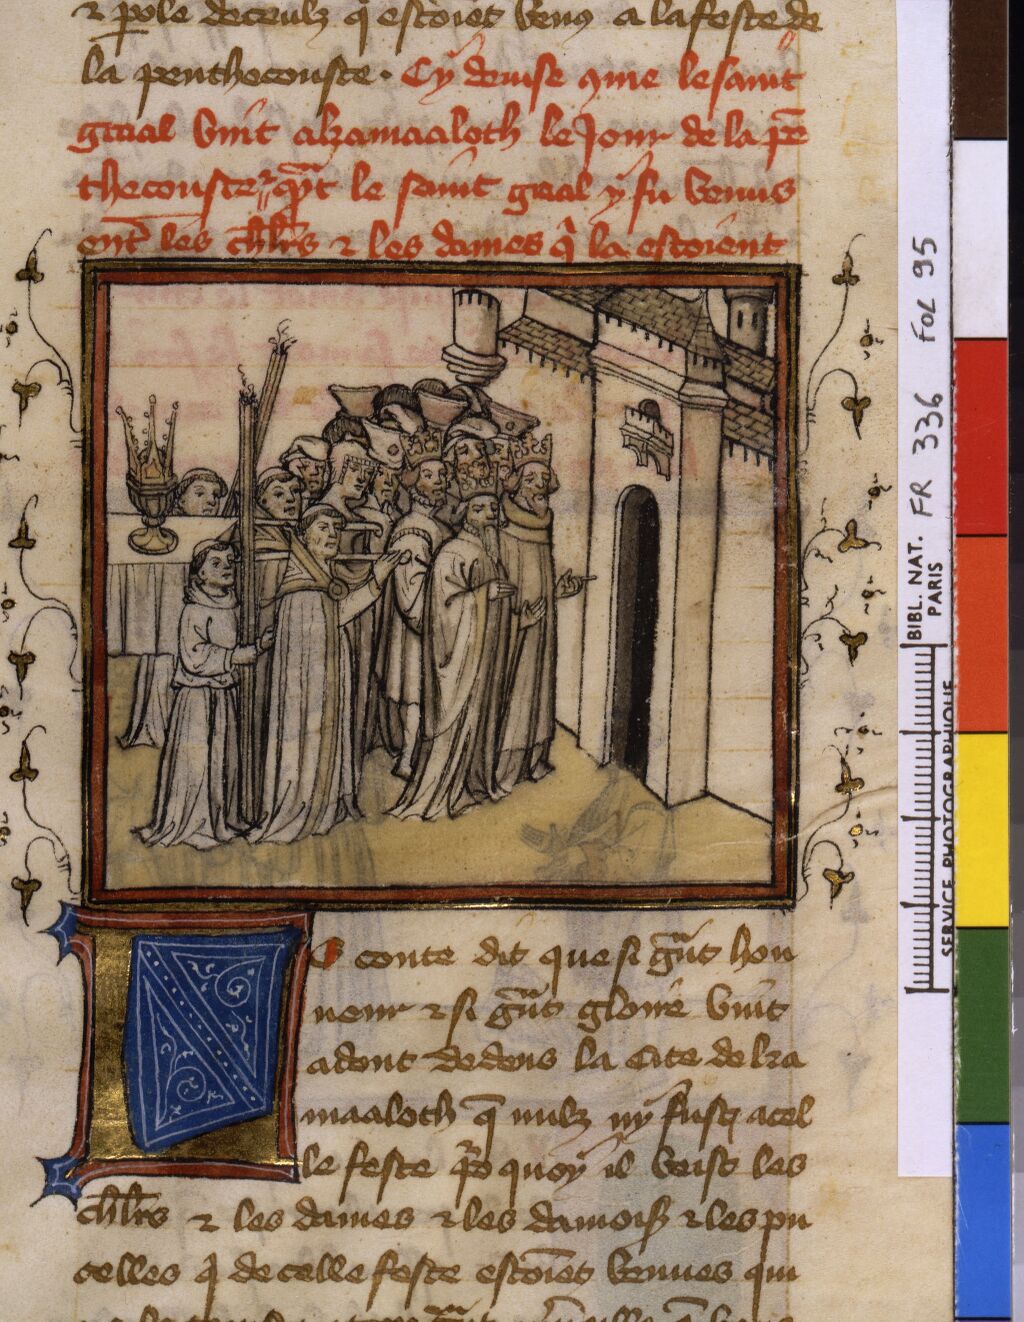 & pole deceulz q̄ estoiēt venꝰ a la feste de
la penthecouste. Cy deuise ꝯme le saint
graal vint a kamaaloth le Jour de la pē
thecouste & qāt le saint graal y fu venus
ent̄ les ch̄lrs & les dames q̄ la estoient
e conte dit que si g̃nt hon
neur & si g̃nt gloire vint
adont dedens la cite de ka
maaloth q̄ nulz ny fust a cel
le feste po quoy il veist les
ch̄lrs & les dames & les damois & les pu
celles q̄ de celle feste estoiēt venues qui
BIBL. NAT. PARIS FR 336 FOL 95
SERVICE PHOTOGRAPHIQUE